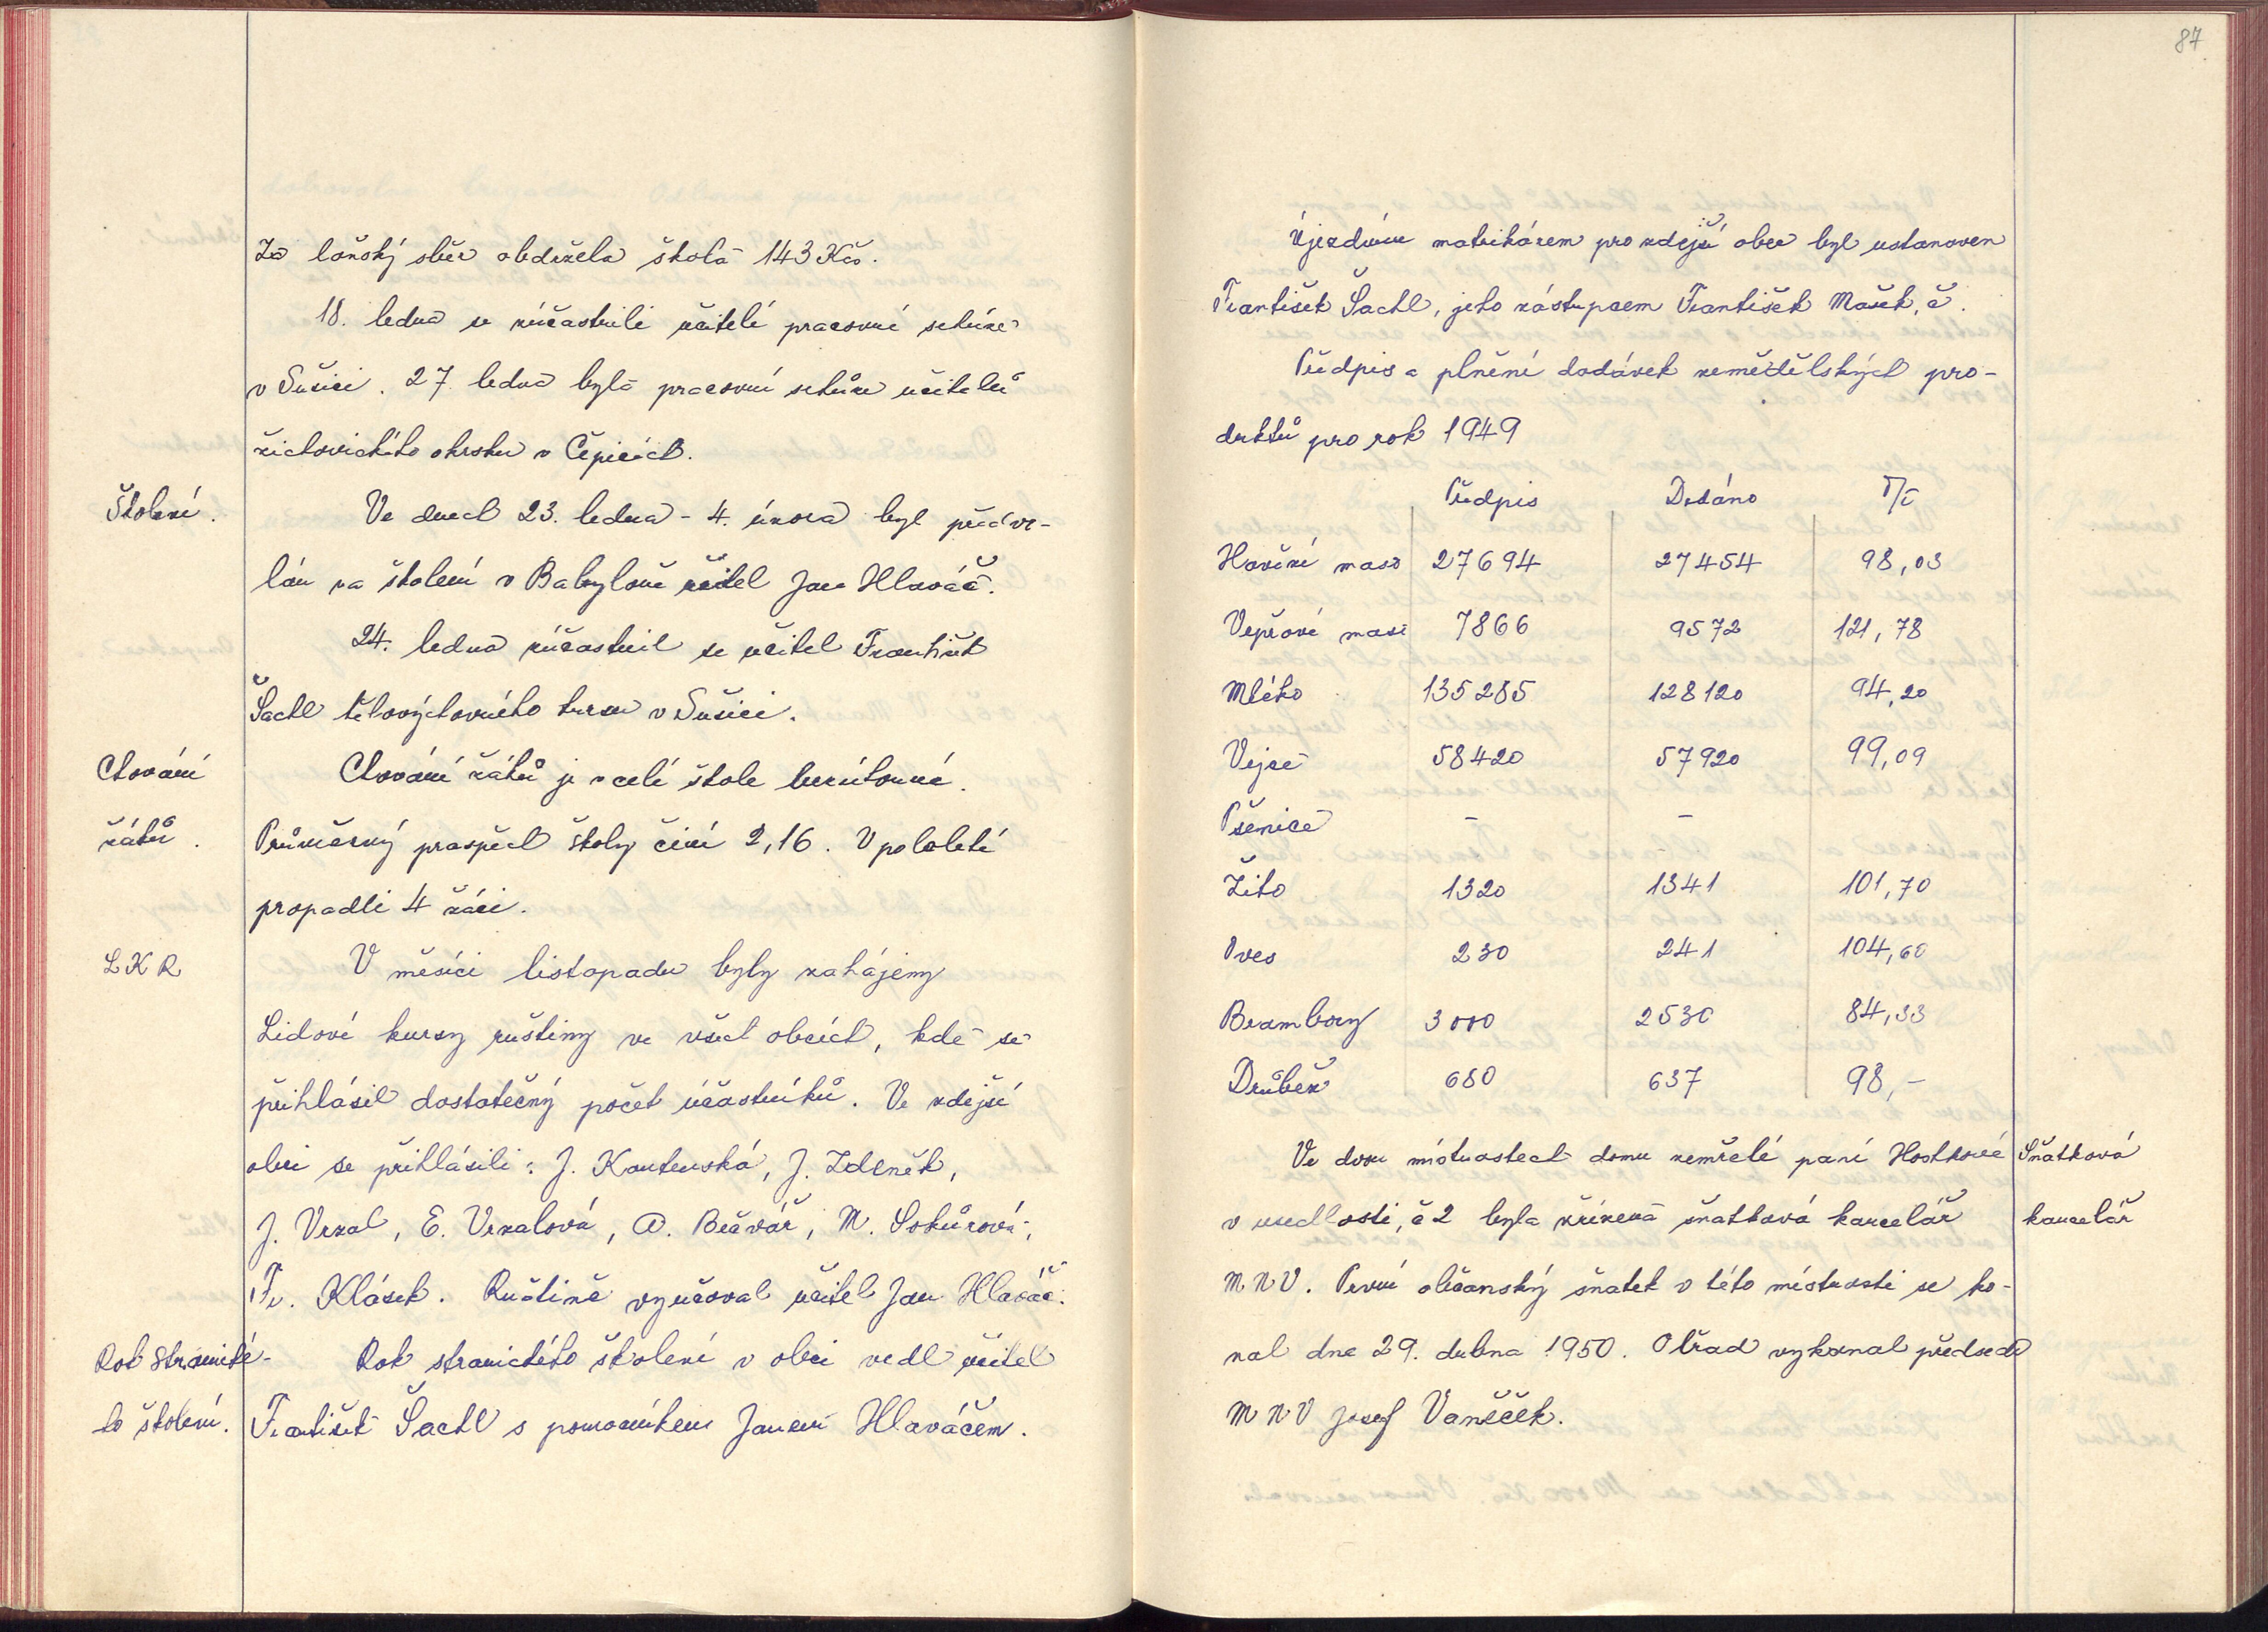 87
Za loňský sběr obdržela škola 143 Kčs.
18. ledna se zúčastnili učitelé pracovní schůze
v Sušici. 27. ledna byla pracovní schůze učitelů
žichovického okrsku v Čepicích.
Školení.
Ve dnech 23. ledna - 4. února byl předvo-
lán na školení v Babyloně učitel Jan Hlaváč.
24. ledna zúčastnil se učitel František
Šachl tělovýchovného kursu v Sušici.
Chování
žáků.
Chování žáků je v celé škole bezúhonné.
Průměrný prospěch školy činí 2,16. V pololetí
propadli 4 žáci.
LKR
V měsíci listopadu byly zahájeny
Lidové kursy ruštiny ve všech obcích, kde se
přihlásil dostatečný počet účastníků. Ve zdejší
obci se přihlásili: J. Kantenská, J. Zdeněk,
J. Vrzal, E. Vrzalová, A. Bečvář, M. Sokůrová,
Fr. Klásek. Ruštině vyučoval učitel Jan Hlaváč.
Rok stranické-
ho školení.
Rok stranického školení v obci vedl učitel
František Šachl s pomocníkem Janem Hlaváčem.
Újezdním matrikářem pro zdejší obec byl ustanoven
František Šachl, jeho zástupcem František Mašek, č.
Předpis a plnění dodávek zemědělských pro-
duktů pro rok 1949
Předpis Dodáno %
Hovězí maso 27694 27454 98,03
Vepřové maso 7866 9572 121,78
Mléko 135285 128120 94,20
Vejce 58420 57920 99,09
Pšenice - -
Žito 1320 1341 101,70
Oves 230 241 104,60
Brambory 3000 2530 84,33
Drůbež 680 637 98,-
Ve dvou místnostech domu zemřelé paní Hostkové
v usedlosti, č 2 byla zřízena sňatková kancelář
MNV. První občanský sňatek v této místnosti se ko-
nal dne 29. dubna 1950. Obřad vykonal předseda
MNV Josef Vaněček.
Sňatková
kancelář